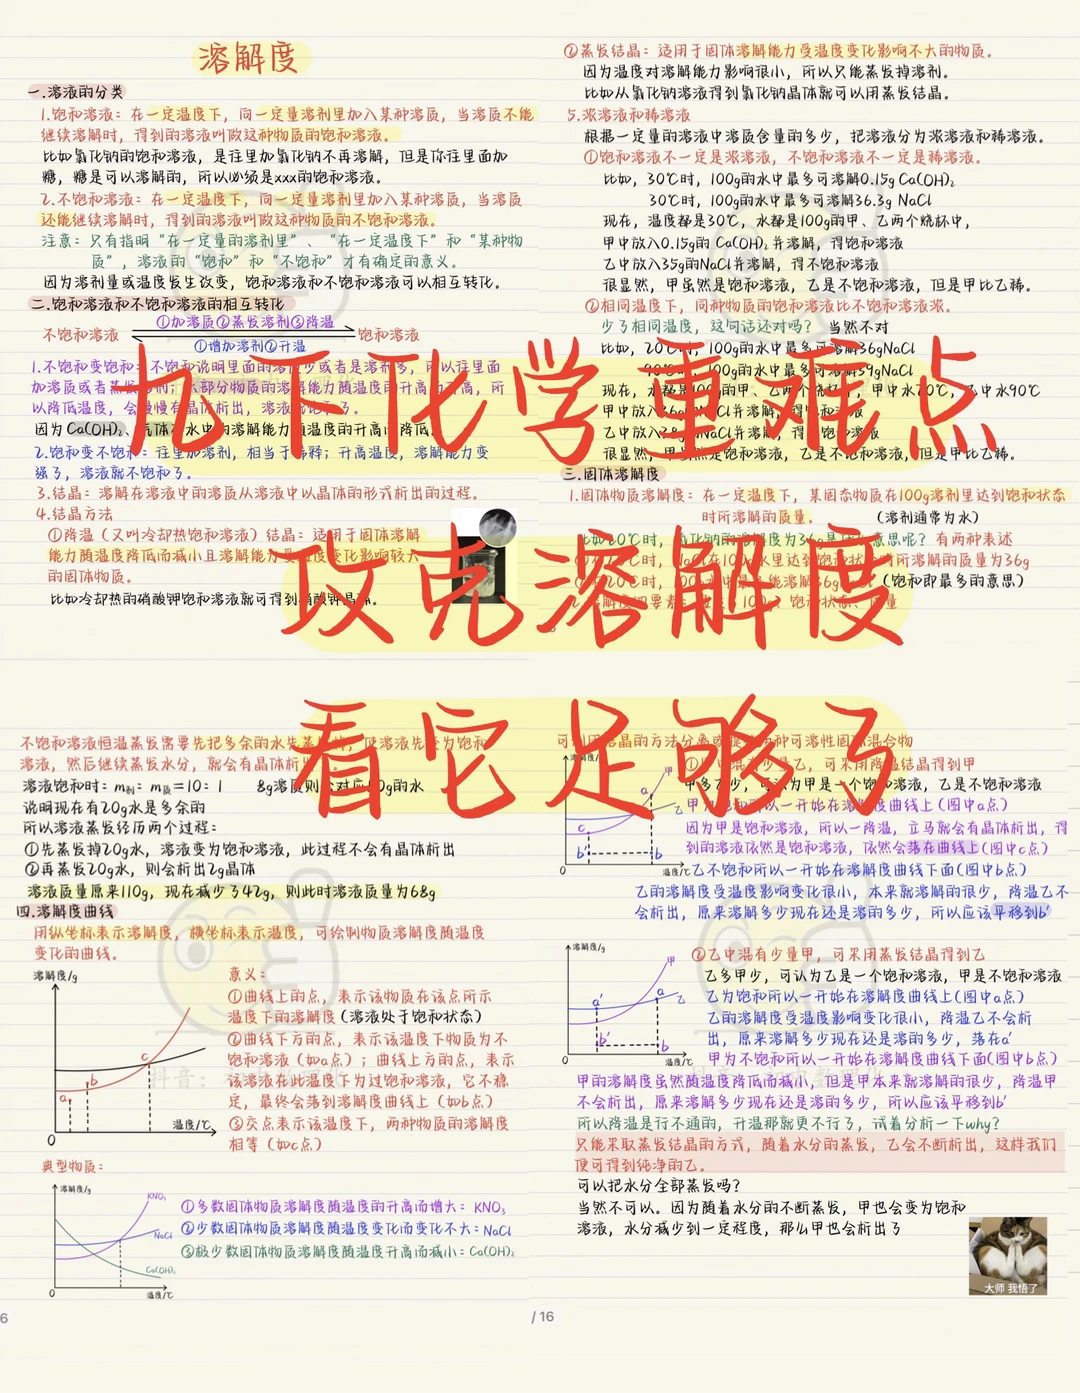 溶解度
一.溶液的分类
1.饱和溶液：在一定温度下，向一定量溶剂里加入某种溶质，当溶质不能
继续溶解时，得到的溶液叫做这种物质的饱和溶液。
比如氯化钠的饱和溶液，是往里加氯化钠不再溶解，但是你往里面加
糖，糖是可以溶解的，所以必须是xxx的饱和溶液。
2.不饱和溶液：在一定温度下，向一定量溶剂里加入某种溶质，当溶质
还能继续溶解时，得到的溶液叫做这种物质的不饱和溶液。
注意：只有指明“在一定量的溶剂里”、“在一定温度下”和“某种物
质”，溶液的“饱和”和“不饱和”才有确定的意义。
因为溶剂量或温度发生改变，饱和溶液和不饱和溶液可以相互转化。
二.饱和溶液和不饱和溶液的相互转化
①加溶质②蒸发溶剂③降温
不饱和溶液 饱和溶液
①增加溶剂②升温
1.不饱和变饱和：不饱和说明里面的溶质少或者是溶剂多，所以往里面
加溶质或者蒸发溶剂；大部分物质的溶解能力随温度的升高而升高，所
以降低温度，会慢慢有晶体析出，溶液就饱和了。
因为Ca(OH)₂、气体在水中的溶解能力随温度的升高而降低。
2.饱和变不饱和：往里加溶剂，相当于稀释；升高温度，溶解能力变
强了，溶液就不饱和了。
3.结晶：溶解在溶液中的溶质从溶液中以晶体的形式析出的过程。
4.结晶方法
①降温（又叫冷却热饱和溶液）结晶：适用于固体溶解
能力随温度降低而减小且溶解能力受温度变化影响较大
的固体物质。
比如冷却热的硝酸钾饱和溶液就可得到硝酸钾晶体。
②蒸发结晶：适用于固体溶解能力受温度变化影响不大的物质。
因为温度对溶解能力影响很小，所以只能蒸发掉溶剂。
比如从氯化钠溶液得到氯化钠晶体就可以用蒸发结晶。
5.浓溶液和稀溶液
根据一定量的溶液中溶质含量的多少，把溶液分为浓溶液和稀溶液。
①饱和溶液不一定是浓溶液，不饱和溶液不一定是稀溶液。
比如，30℃时，100g的水中最多可溶解0.15g Ca(OH)₂
30℃时，100g的水中最多可溶解36.3g NaCl
现在，温度都是30℃，水都是100g的甲、乙两个烧杯中，
甲中放入0.15g的 Ca(OH)₂ 并溶解，得饱和溶液
乙中放入35g的NaCl并溶解，得不饱和溶液
很显然，甲虽然是饱和溶液，乙是不饱和溶液，但是甲比乙稀。
②相同温度下，同种物质的饱和溶液比不饱和溶液浓。
少了相同温度，这句话还对吗？ 当然不对
比如，20℃时，100g的水中最多可溶解36gNaCl
90℃时，100g的水中最多可溶解39gNaCl
现在，水都是100g的甲、乙两个烧杯中，甲中水20℃，乙中水90℃
甲中放入36g的NaCl并溶解，得饱和溶液
乙中放入38g的NaCl并溶解，得不饱和溶液
很显然，甲虽然是饱和溶液，乙是不饱和溶液，但是甲比乙稀。
三.固体溶解度
1.固体物质溶解度：在一定温度下，某固态物质在100g溶剂里达到饱和状态
时所溶解的质量。 （溶剂通常为水）
比如20℃时，氯化钠的溶解度为36g是什么意思呢？有两种表述
NaCl在100g水里达到饱和状态时所溶解的质量为36g
20℃时，100g水中最多能溶解36g（饱和即最多的意思）
九下化学重难点
攻克溶解度
看它足够了
不饱和溶液恒温蒸发需要先把多余的水先蒸发掉，使溶液先变为饱和
溶液，然后继续蒸发水分，就会有晶体析出
溶液饱和时：m剂：m质＝10：1 8g溶质则会对应80g的水
说明现在有20g水是多余的
所以溶液蒸发经历两个过程：
①先蒸发掉20g水，溶液变为饱和溶液，此过程不会有晶体析出
②再蒸发20g水，则会析出2g晶体
溶液质量原来110g，现在减少了42g，则此时溶液质量为68g
四.溶解度曲线
用纵坐标表示溶解度，横坐标表示温度，可绘制物质溶解度随温度
变化的曲线。
溶解度/g
c
b
a
0
温度/℃
意义：
①曲线上的点，表示该物质在该点所示
温度下的溶解度（溶液处于饱和状态）
②曲线下方的点，表示该温度下物质为不
饱和溶液（如a点）；曲线上方的点，表示
该溶液在此温度下为过饱和溶液，它不稳
定，最终会落到溶解度曲线上（如b点）
③交点表示该温度下，两种物质的溶解度
相等（如c点）
典型物质：
溶解度/g
KNO₃
NaCl
Ca(OH)₂
0
温度/℃
①多数固体物质溶解度随温度的升高而增大：KNO₃
②少数固体物质溶解度随温度变化而变化不大：NaCl
③极少数固体物质溶解度随温度升高而减小：Ca(OH)₂
可利用结晶的方法分离或提纯两种可溶性固体混合物
溶解度/g
甲
乙
a
c
b'
b
温度/℃
①甲中混有少量乙，可采用降温结晶得到甲
甲多乙少，可认为甲是一个饱和溶液，乙是不饱和溶液
甲为饱和所以一开始在溶解度曲线上（图中a点）
因为甲是饱和溶液，所以一降温，立马就会有晶体析出，得
到的溶液依然是饱和溶液，依然会落在曲线上（图中c点）
乙不饱和所以一开始在溶解度曲线下面（图中b点）
乙的溶解度受温度影响变化很小，本来就溶解的很少，降温乙不
会析出，原来溶解多少现在还是溶的多少，所以应该平移到b'
溶解度/g
甲
乙
a'
a
b'
b
温度/℃
②乙中混有少量甲，可采用蒸发结晶得到乙
乙多甲少，可认为乙是一个饱和溶液，甲是不饱和溶液
乙为饱和所以一开始在溶解度曲线上（图中a点）
乙的溶解度受温度影响变化很小，降温乙不会析
出，原来溶解多少现在还是溶的多少，落在a'
甲为不饱和所以一开始在溶解度曲线下面（图中b点）
甲的溶解度虽然随温度降低而减小，但是甲本来就溶解的很少，降温甲
不会析出，原来溶解多少现在还是溶的多少，所以应该平移到b'
所以降温是行不通的，升温那就更不行了，试着分析一下why？
只能采取蒸发结晶的方式，随着水分的蒸发，乙会不断析出，这样我们
便可得到纯净的乙。
可以把水分全部蒸发吗？
当然不可以。因为随着水分的不断蒸发，甲也会变为饱和
溶液，水分减少到一定程度，那么甲也会析出了
大师 我悟了
6
/ 16